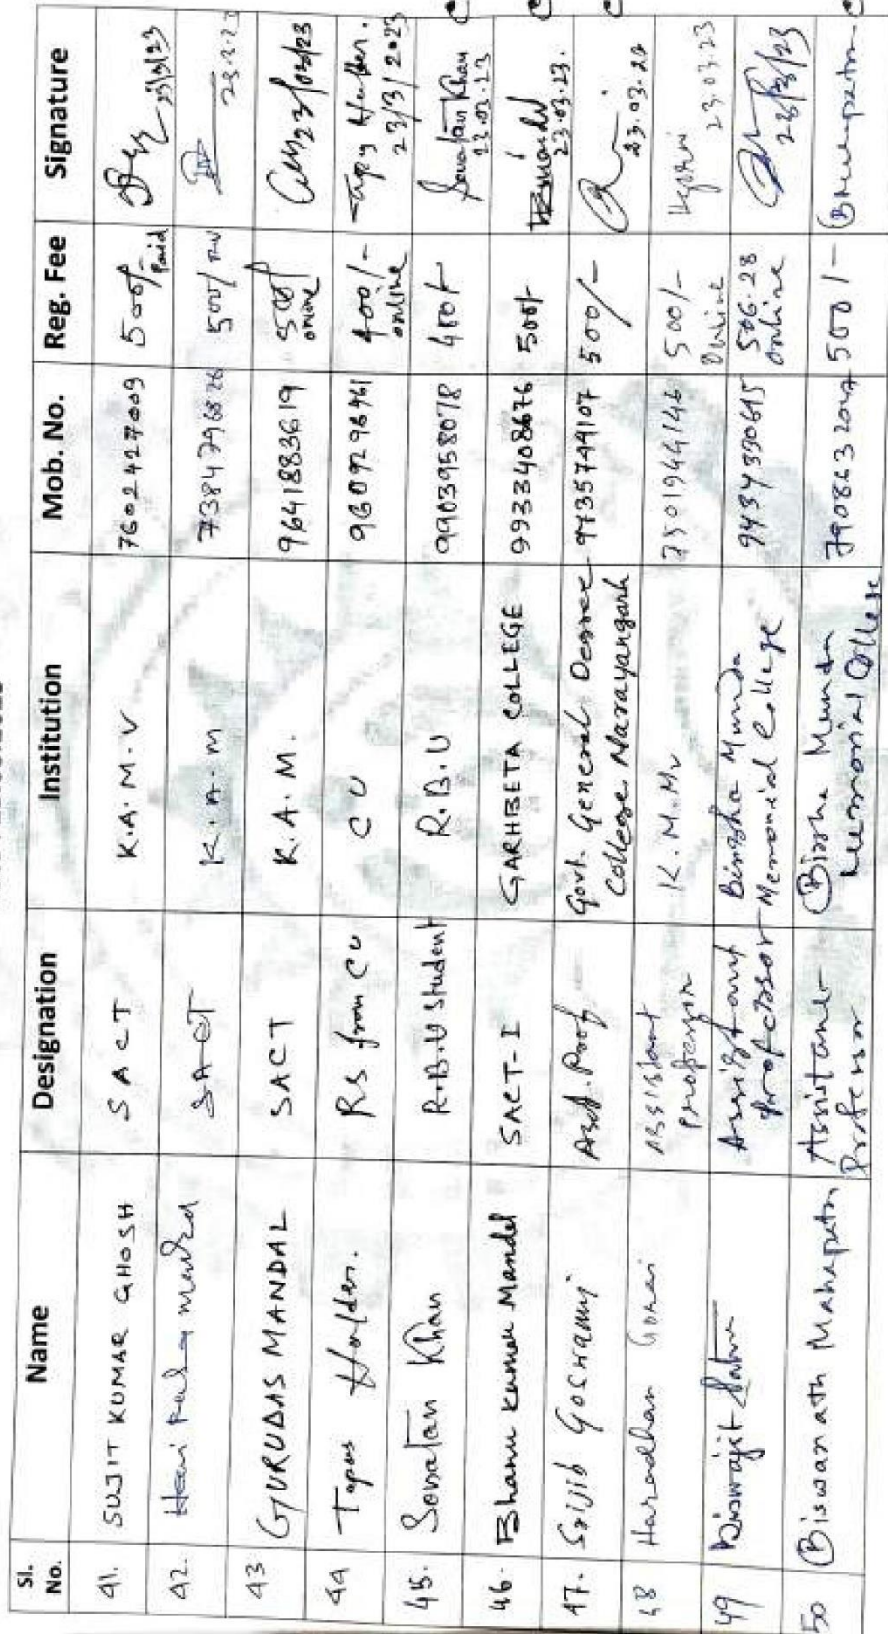 Sl. No. Name Designation Institution Mob. No. Reg. Fee Signature
41. SUJIT KUMAR GHOSH SACT K.A.M.V 7602427009 500/- Paid 23/3/23
42. SACT K.A.M 500/-
43 GURUDAS MANDAL SACT K.A.M. 9641883619 500/ online 23/03/23
44 Tapas Halder. RS from CU CU 400/- online Tapas Halder. 23/3/2023
45. Sonatan Khan R.B.U Student R.B.U 9903958078 400/- Sonatan Khan 23.03.23
46. Bhanu Kumar Mandal SACT-I GARHBETA COLLEGE 9933408676 500/- 23.03.23.
47. Srijib Goswami Asst. Prof Govt. General Degree College Narayangarh 9735749107 500/- 23.03.23
48 Haradhan Gorai Assistant professor K.M.Mv 500/- Online 23.03.23
49 Biswajit Assistant Professor Birsha Munda Memorial College 506.28 online 23/3/23
50 Biswanath Mahapatra Assistant Professor Birsha Munda Memorial College 500/-